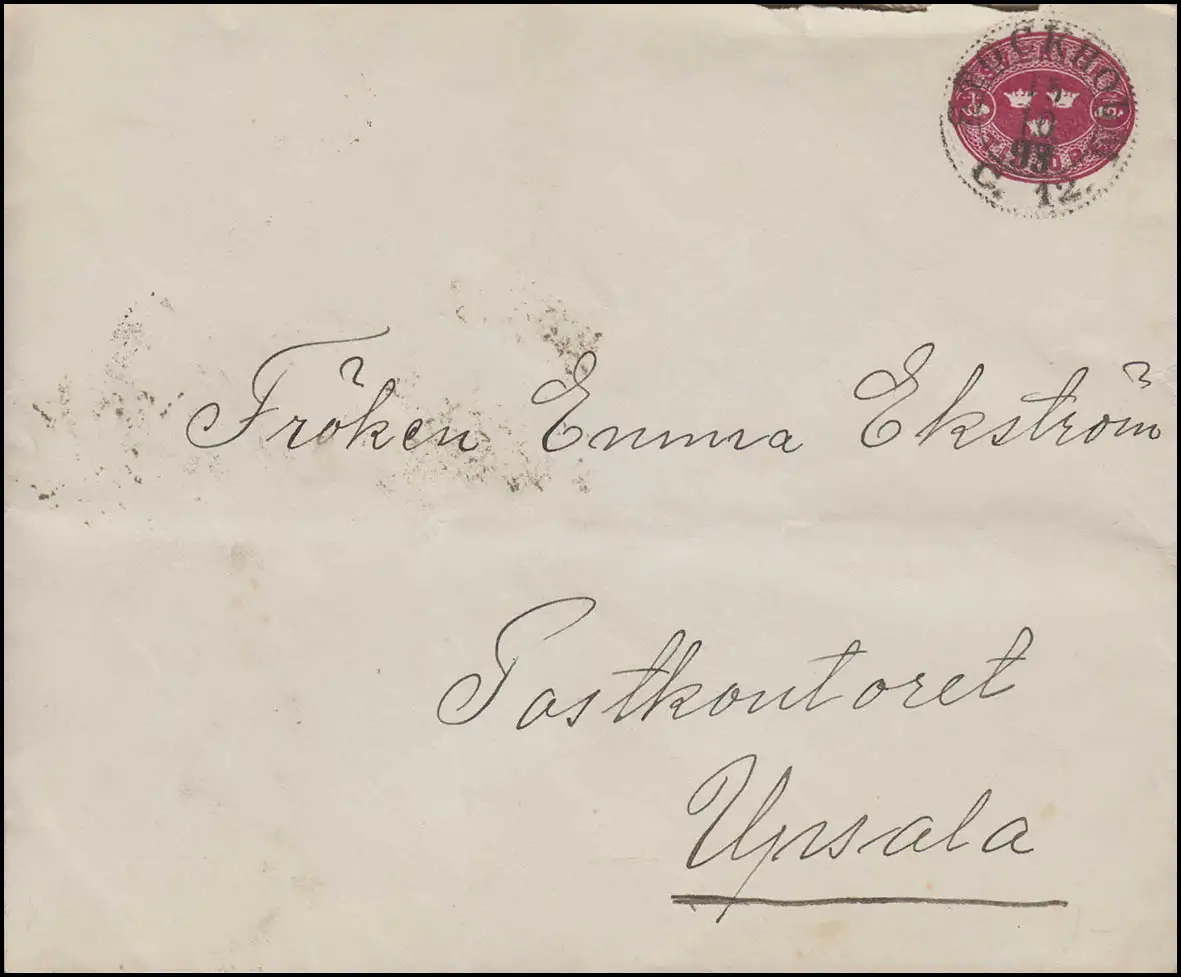 STOCKHOLM
15
10
93
C. 12.
Fröken Emma Ekström
Postkontoret
Upsala